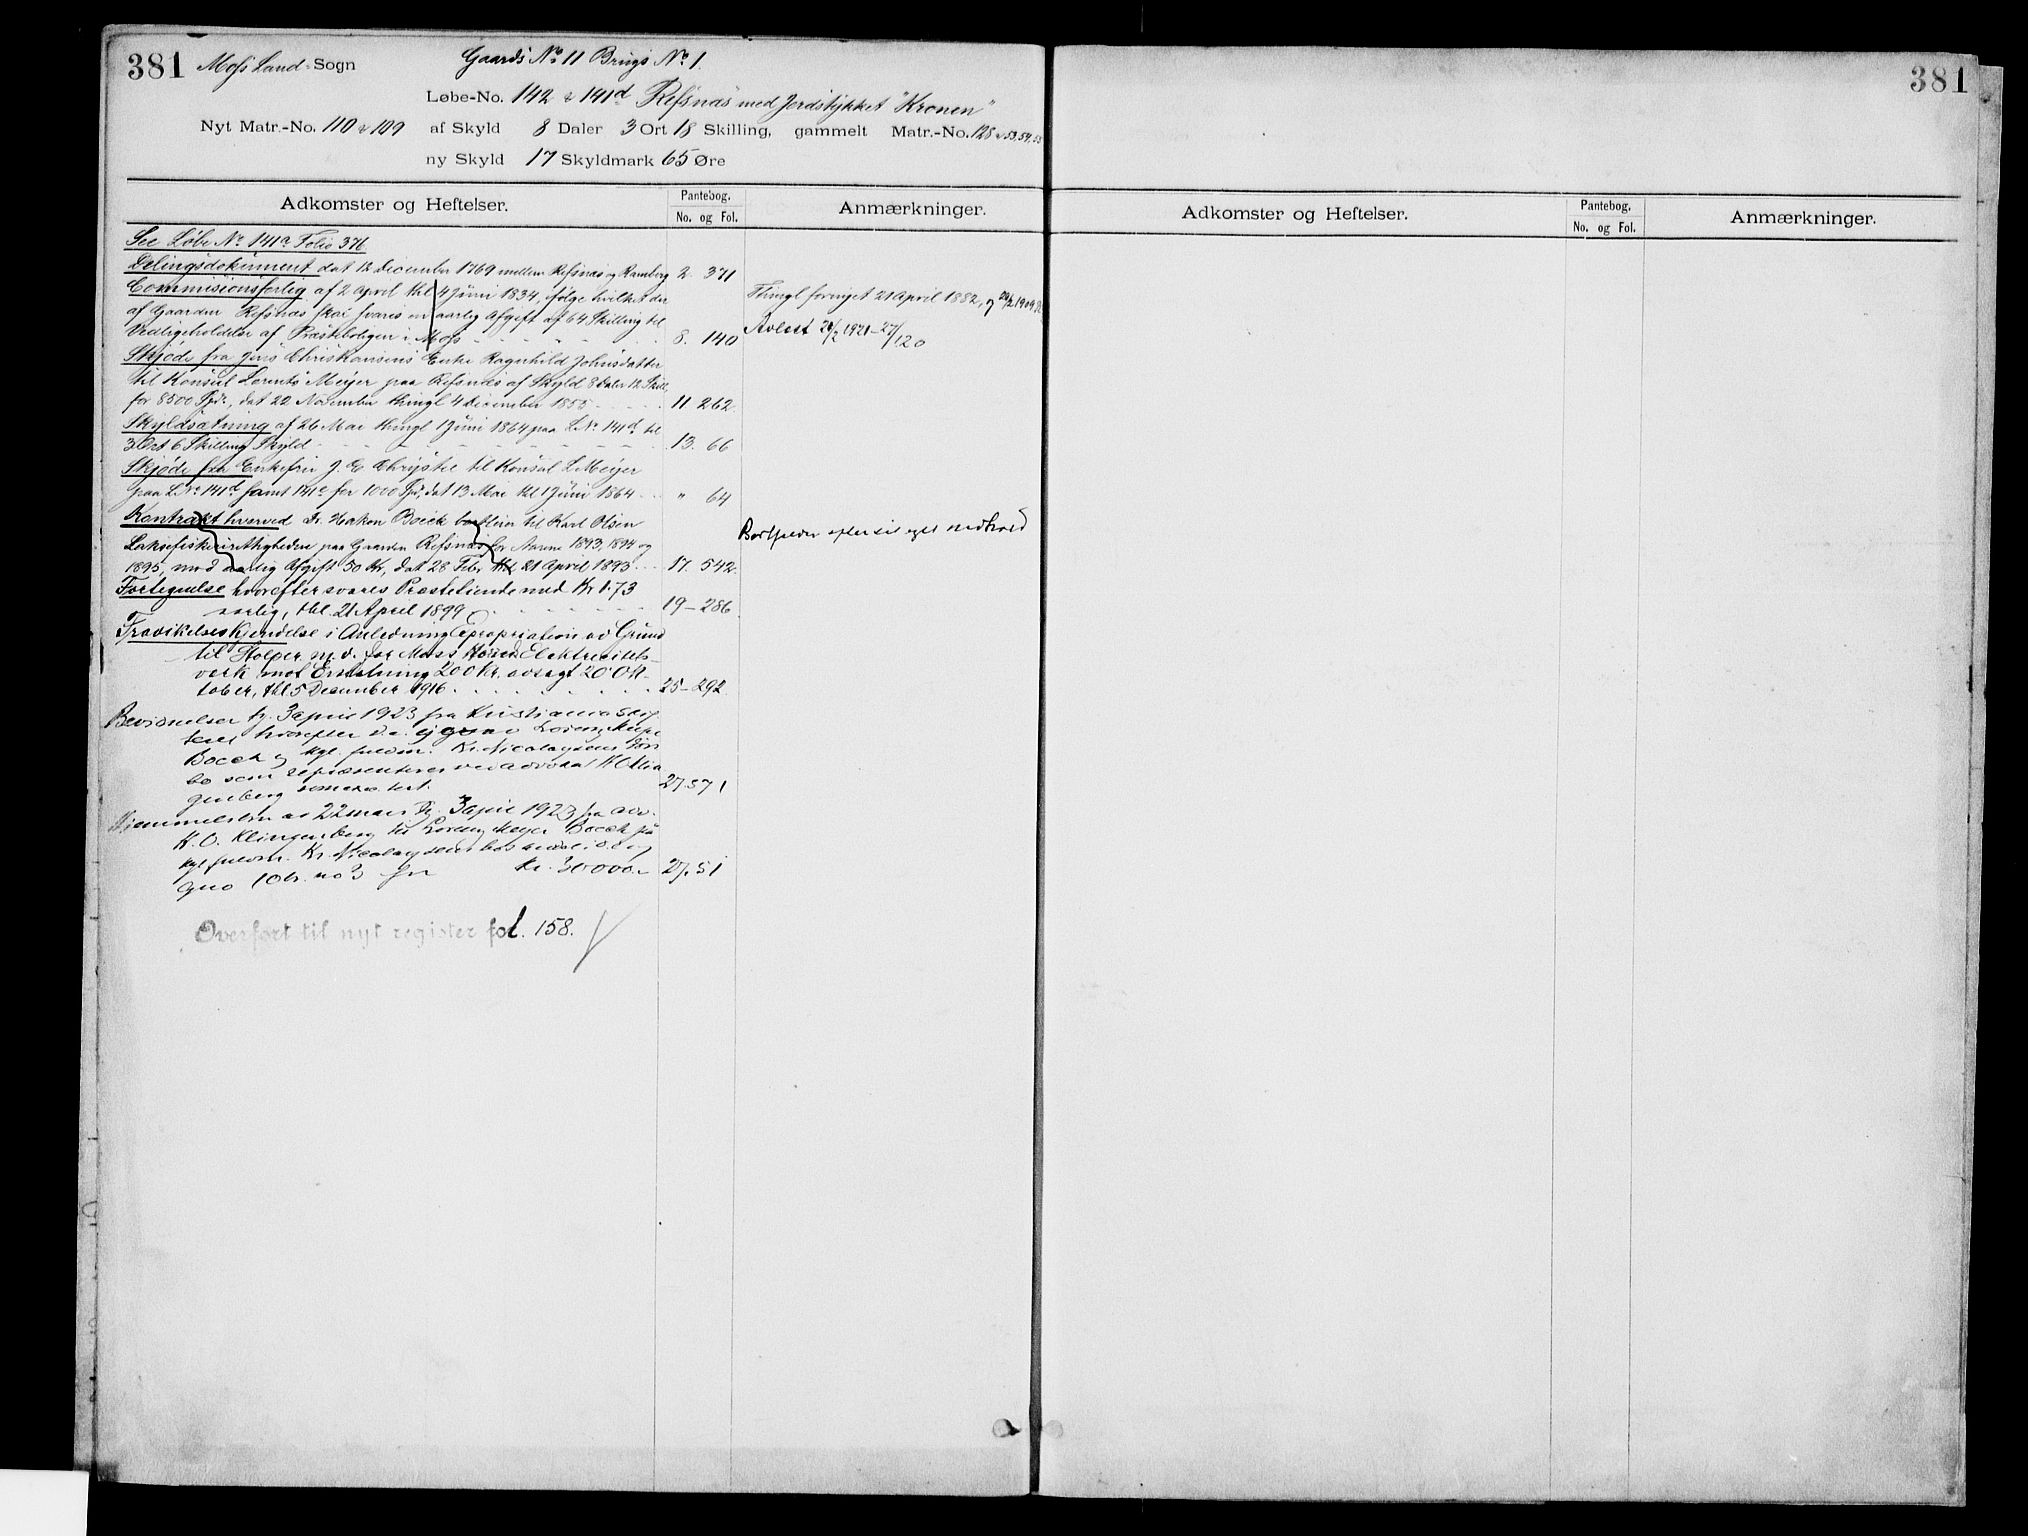 381 Moss Land-Sogn Gaards No 11 Brugs No 1. 381
Løbe-No. 142 & 141d Refsnæs med Jordstykket "Kronen"
Nyt Matr.-No. 110 & 109 af Skyld 8 Daler 3 Ort 18 Skilling, gammelt Matr.-No. 128 & 53, 54, 55
ny Skyld 17 Skyldmark 65 Øre
Adkomster og Heftelser. Pantebog. No. og Fol. Anmærkninger. Adkomster og Heftelser. Pantebog. No. og Fol. Anmærkninger.
See Løbe No 141a Folio 376
Delingsdokument dat 12 December 1769 mellem Refsnæs og Ramberg 2. 371
Commisionsforlig af 2 April thl 4 Juni 1834, ifølge hvilket der Thingl fornyet 21 April 1882,
af Gaarden Refsnæs skal svares en aarlig Afgift af 64 Skilling til
Vedligeholdelse af Præsteboligen i Moss 8. 140 Avlest 1921 - 27/120
Skjøde fra Jens Christiansens Enke Ragnhild Johnsdatter
til Konsul Lorents Meyer paa Refsnæs af Skyld 8 Daler 12 Skill,
for 8500 Spdr, dat 22 November thingl 4 December 1855 11 262.
Skyldsætning af 26 Mai thingl 1 Juni 1864 paa L.No 141d til
3 Ort 6 Skilling Skyld 13. 66
Skjøde fra Enkefru J. E. Chrystie til Konsul L Meyer
paa L.No 141d samt 141e for 1000 Spd, dat 13 Mai thl 1 Juni 1864 " 64
Kontrakt hvorved Hr. Hakon Boeck bortleier til Karl Olsen Bortfalder efter sit eget indhold
Laksefiskerirettigheden paa Gaarden Refsnæs for Aarene 1893, 1894 og
1895, mod aarlig Afgift 50 Kr, dat 28 Febr thl 21 April 1893 17. 542.
Fortegnelse hvorefter svares Præstetiende med Kr 1.73
aarlig, thl. 21 April 1899 19 - 286
Fravikelseskjendelse i Anledning Expropriation av Grund
til Stolper m. v. for Moss Elektricitets-
verk mot Erstatning 200 Kr. avsagt 20 Ok-
tober, thl 5 December 1916 25 - 292
Bevidnelser tg. 3 april 1923 fra Kristiania skif
teret hvorefter d. e. eies av Lorentz Meyer
Boeck og kgl. fuldm. Kr. Nicolaysens
bo som repræsenteres ved advokat K O Klin
genberg 27. 571
Hjemmelsbr av 22 mars tg. 3 april 1923 fra adv.
K. O. Klingenberg til Lorentz Meyer Boeck på
kgl fuldm. Kr. Nicolaysens bos andel i d. e. og
gno 10 br. no 3 for kr. 30000.- 27. 51
Overført til nyt register fol. 158.